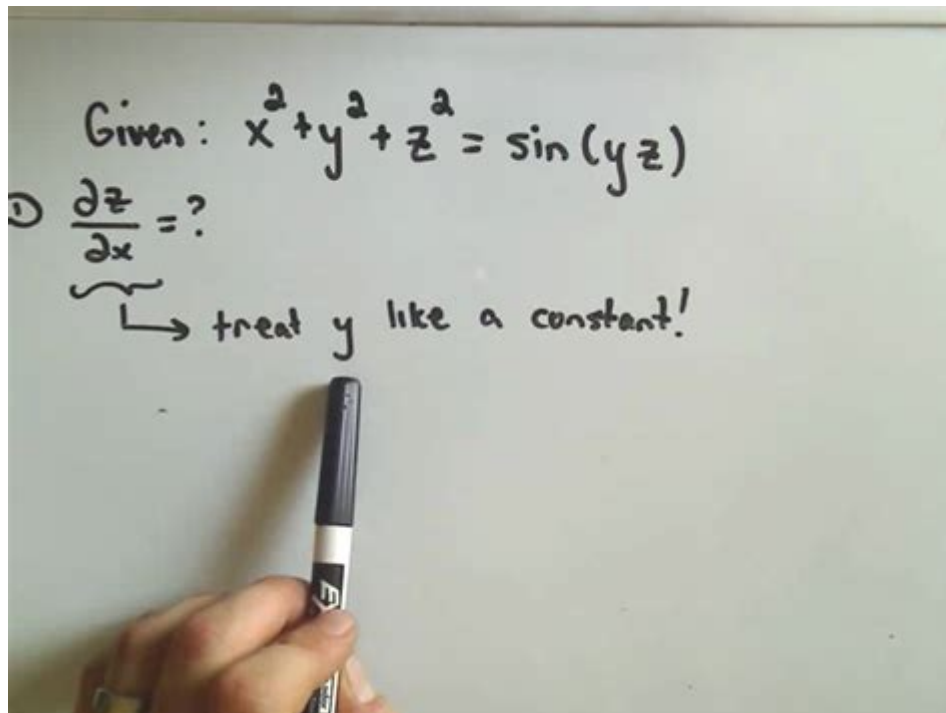 Given: x² + y² + z² = sin(yz)
① ∂z/∂x = ?
↳ treat y like a constant!